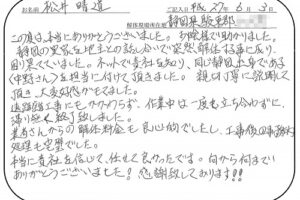 お名前 松井 晴道 ご記入日 平成 27年 6月 3日
解体現場所在地 静岡県駿東郡
この度は、本当にありがとうございました。お陰様で助かりました。
静岡の実家を地主との話し合いで突然、解体する事に成り、
困り果てていました。ネットで貴社を知り、同じ静岡出身である
(中野さん)を担当に付けて頂きました。親切丁寧に説明して
頂き、大変好感がもてました。
遠隔施工にもかかわらず、作業中は一度も立ち合わずに、
滞り無く終了致しました。
業者さんからの解体料金も良心的でしたし、工事後の事務的
処理も完璧でした。
本当に貴社を信じて、任せて良かったです。何から何まで
ありがとうございました! 感謝致しております!!